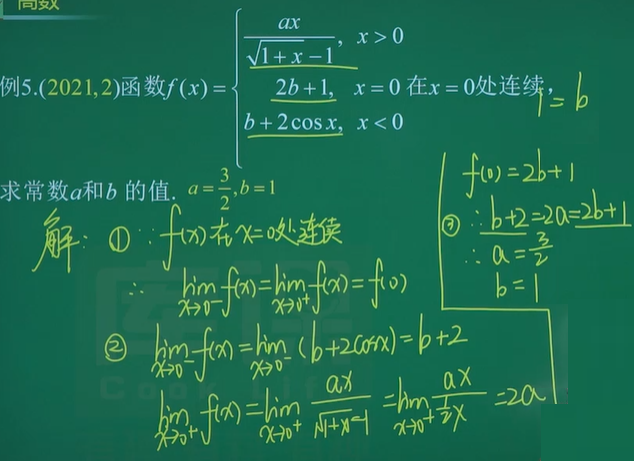 高数
例5.(2021,2)函数f(x)= { ax/(√(1+x)−1), x>0
2b+1, x=0 在x=0处连续,
b+2cosx, x<0
1=b
求常数a和b的值. a=3/2,b=1
解: ① ∵ f(x)在x=0处连续
∴ lim_{x→0⁻} f(x)=lim_{x→0⁺} f(x)=f(0)
② lim_{x→0⁻} f(x)=lim_{x→0⁻} (b+2cosx)=b+2
lim_{x→0⁺} f(x)=lim_{x→0⁺} ax/(√(1+x)−1) =lim_{x→0⁺} ax/(½x) =2a
f(0)=2b+1
③ ∴ b+2=2a=2b+1
∴ a=3/2
b=1